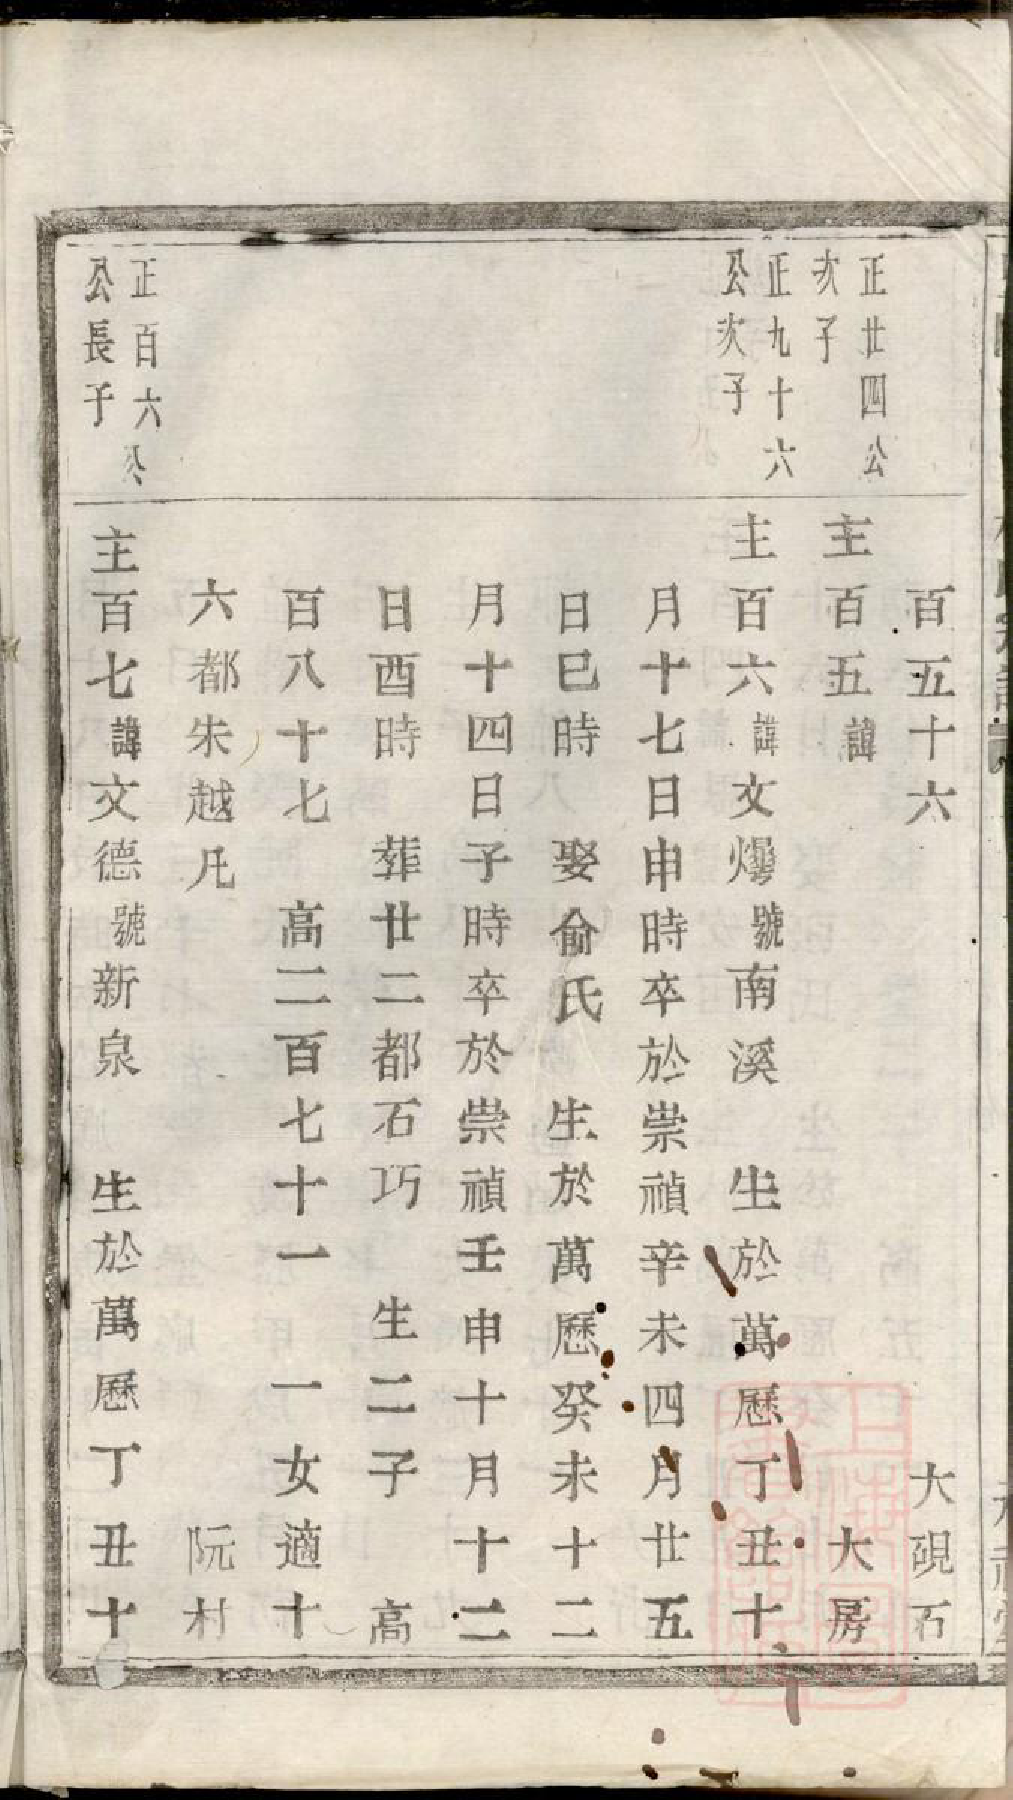 百五十六 大硯石
正廿四公
次子
主百五諱 大房
正九十六
公次子
主百六諱文爆號南溪 生於萬曆丁丑十
月十七日申時卒於崇禎辛未四月廿五
日巳時 娶俞氏 生於萬曆癸未十二
月十四日子時卒於崇禎壬申十月十二
日酉時 葬廿二都石巧 生二子 高
百八十七 高二百七十一 一女適十
六都朱越凡 阮村
正百六公
公長子
主百七諱文德號新泉 生於萬曆丁丑十